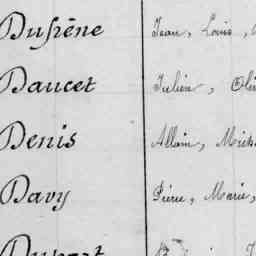 Dufrêne Jean, Louis,
Daucet Julien,
Denis Allain,
Davy Pierre, Marie,